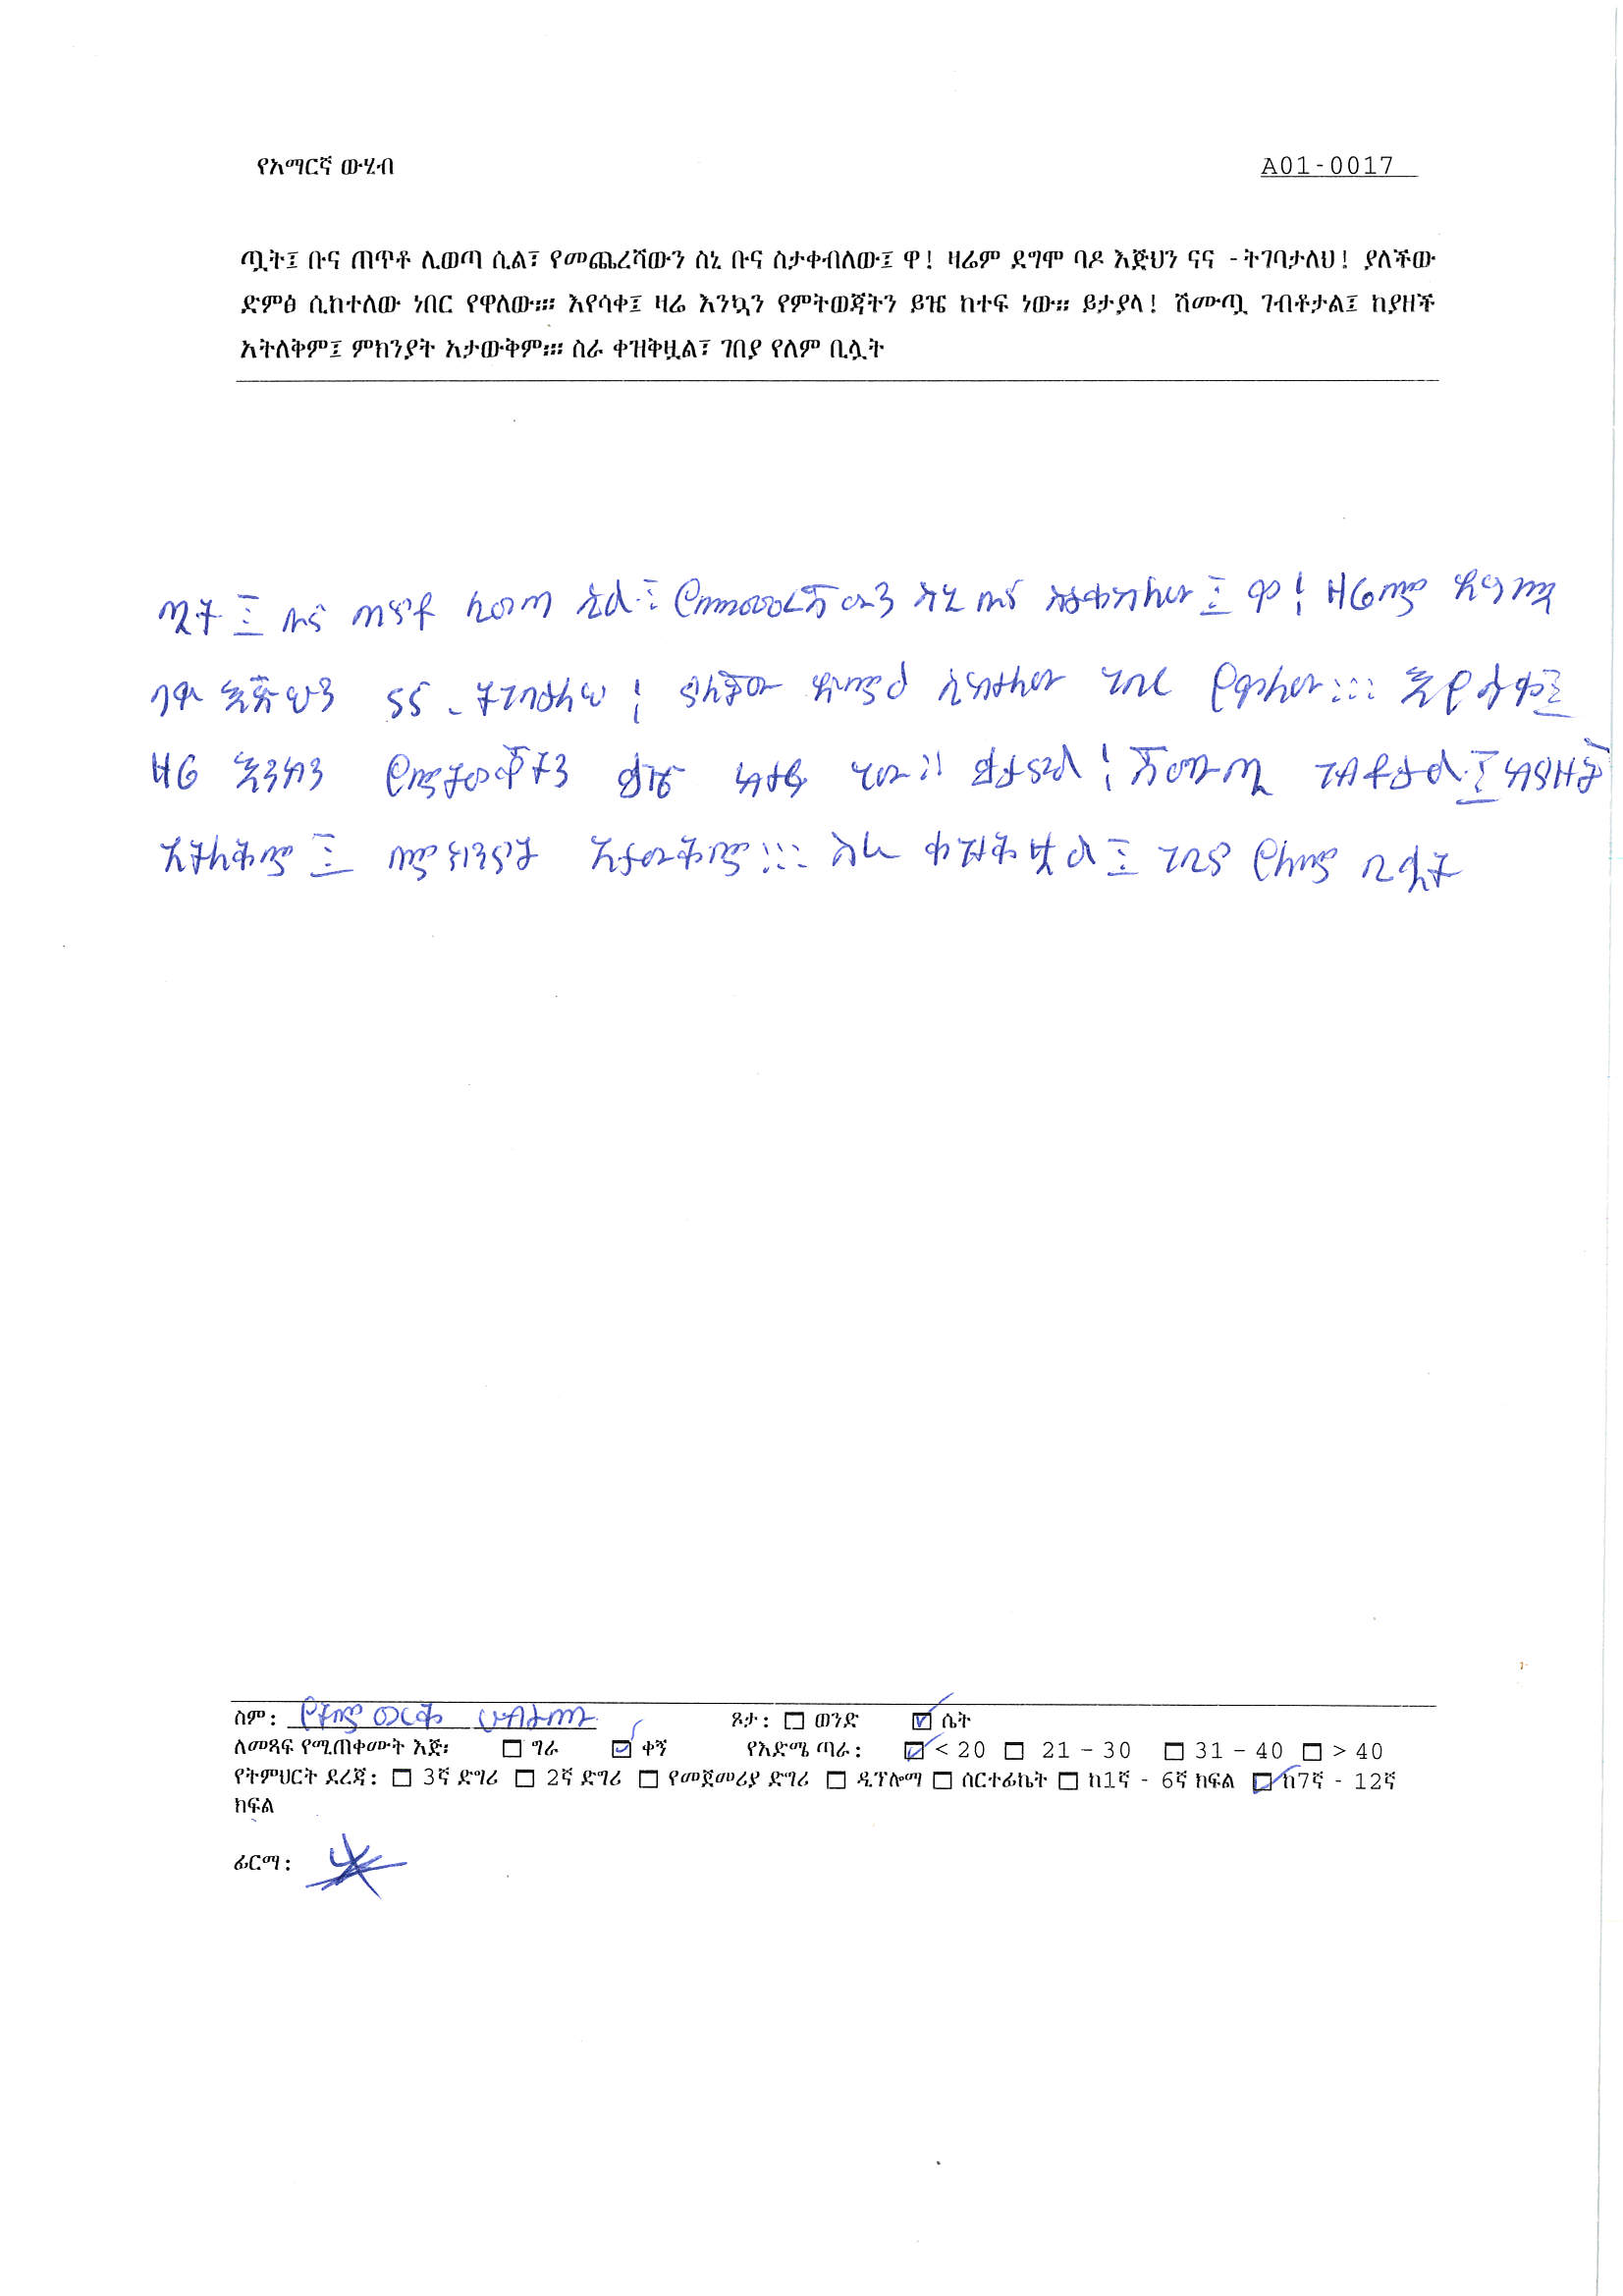 የአማርኛ ውሂብ A01-0017
ጧት፤ ቡና ጠጥቶ ሊወጣ ሲል፣ የመጨረሻውን ስኒ ቡና ስታቀብለው፤ ዋ! ዛሬም ደግሞ ባዶ እጅህን ናና -ትገባታለህ! ያለችው
ድምፅ ሲከተለው ነበር የዋለው።፡ እየሳቀ፤ ዛሬ እንኳን የምትወጃትን ይዤ ከተፍ ነው። ይታያላ! ሽሙጧ ገብቶታል፤ ከያዘች
አትለቅም፤ ምክንያት አታውቅም።፡ ስራ ቀዝቅዟል፣ ገበያ የለም ቢሏት
ጧት፤ ቡና ጠጥቶ ሊወጣ ሲል፣ የመጨረሻውን ስኒ ቡና ስታቀብለው፤ ዋ! ዛሬም ደግሞ
ባዶ እጅህን ናና -ትገባታለህ! ያለችው ድምፅ ሲከተለው ነበር የዋለው።፡ እየሳቀ፤
ዛሬ እንኳን የምትወጃትን ይዤ ከተፍ ነው። ይታያላ! ሽሙጧ ገብቶታል፤ ከያዘች
አትለቅም፤ ምክንያት አታውቅም።፡ ስራ ቀዝቅዟል፣ ገበያ የለም ቢሏት
ስም: የትምወርቅ ሀብታሙ ጾታ: ☐ ወንድ ☑ ሴት
ለመጻፍ የሚጠቀሙት እጅ፡ ☐ ግራ ☑ ቀኝ የእድሜ ጣራ: ☑ < 20 ☐ 21 – 30 ☐ 31 – 40 ☐ > 40
የትምህርት ደረጃ: ☐ 3ኛ ድግሪ ☐ 2ኛ ድግሪ ☐ የመጀመሪያ ድግሪ ☐ ዲፕሎማ ☐ ሰርተፊኬት ☐ ከ1ኛ - 6ኛ ክፍል ☑ ከ7ኛ - 12ኛ
ክፍል
ፊርማ: